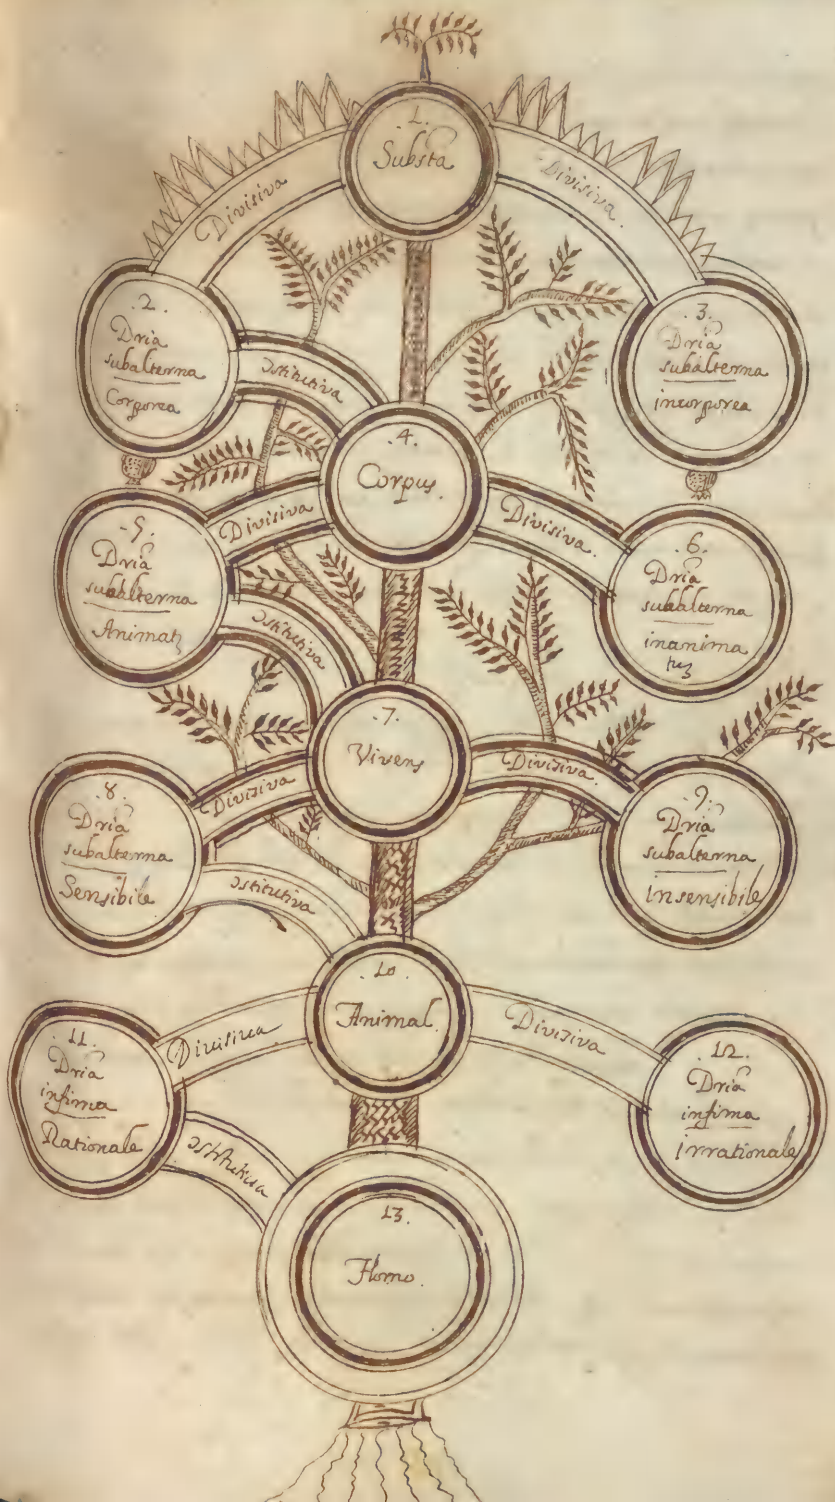 .1.
Substa
Divisiva
Divisiva.
.2.
Dria
subalterna
Corporea
.3.
Dria
subalterna
incorporea
Istitutiva
.4.
Corpus.
Divisiva
Divisiva.
.5.
Dria
subalterna
.6.
Dria
subalterna
inanima
Istitutiva
.7.
Vivens
Divisiva
Divisiva.
.8.
Dria
subalterna
Sensibile
.9.
Dria
subalterna
insensibile
Istitutiva
.10.
Animal.
Divisiva
Divisiva
11.
Dria
infima
Rationale
.12.
Dria
infima
irrationale
Istitutiva
13.
Homo.